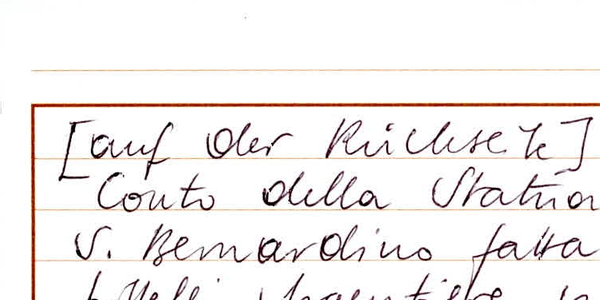 [auf der Rückseite]
Conto della Statua
S. Bernardino fatta